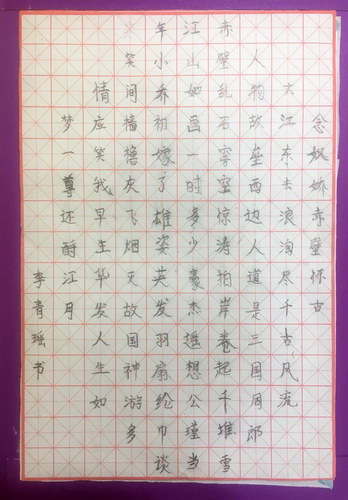 念奴娇赤壁怀古
大江东去浪淘尽千古风流
人物故垒西边人道是三国周郎
赤壁乱石穿空惊涛拍岸卷起千堆雪
江山如画一时多少豪杰遥想公瑾当
年小乔初嫁了雄姿英发羽扇纶巾谈
笑间樯橹灰飞烟灭故国神游多
情应笑我早生华发人生如
梦一尊还酹江月
李青瑶书